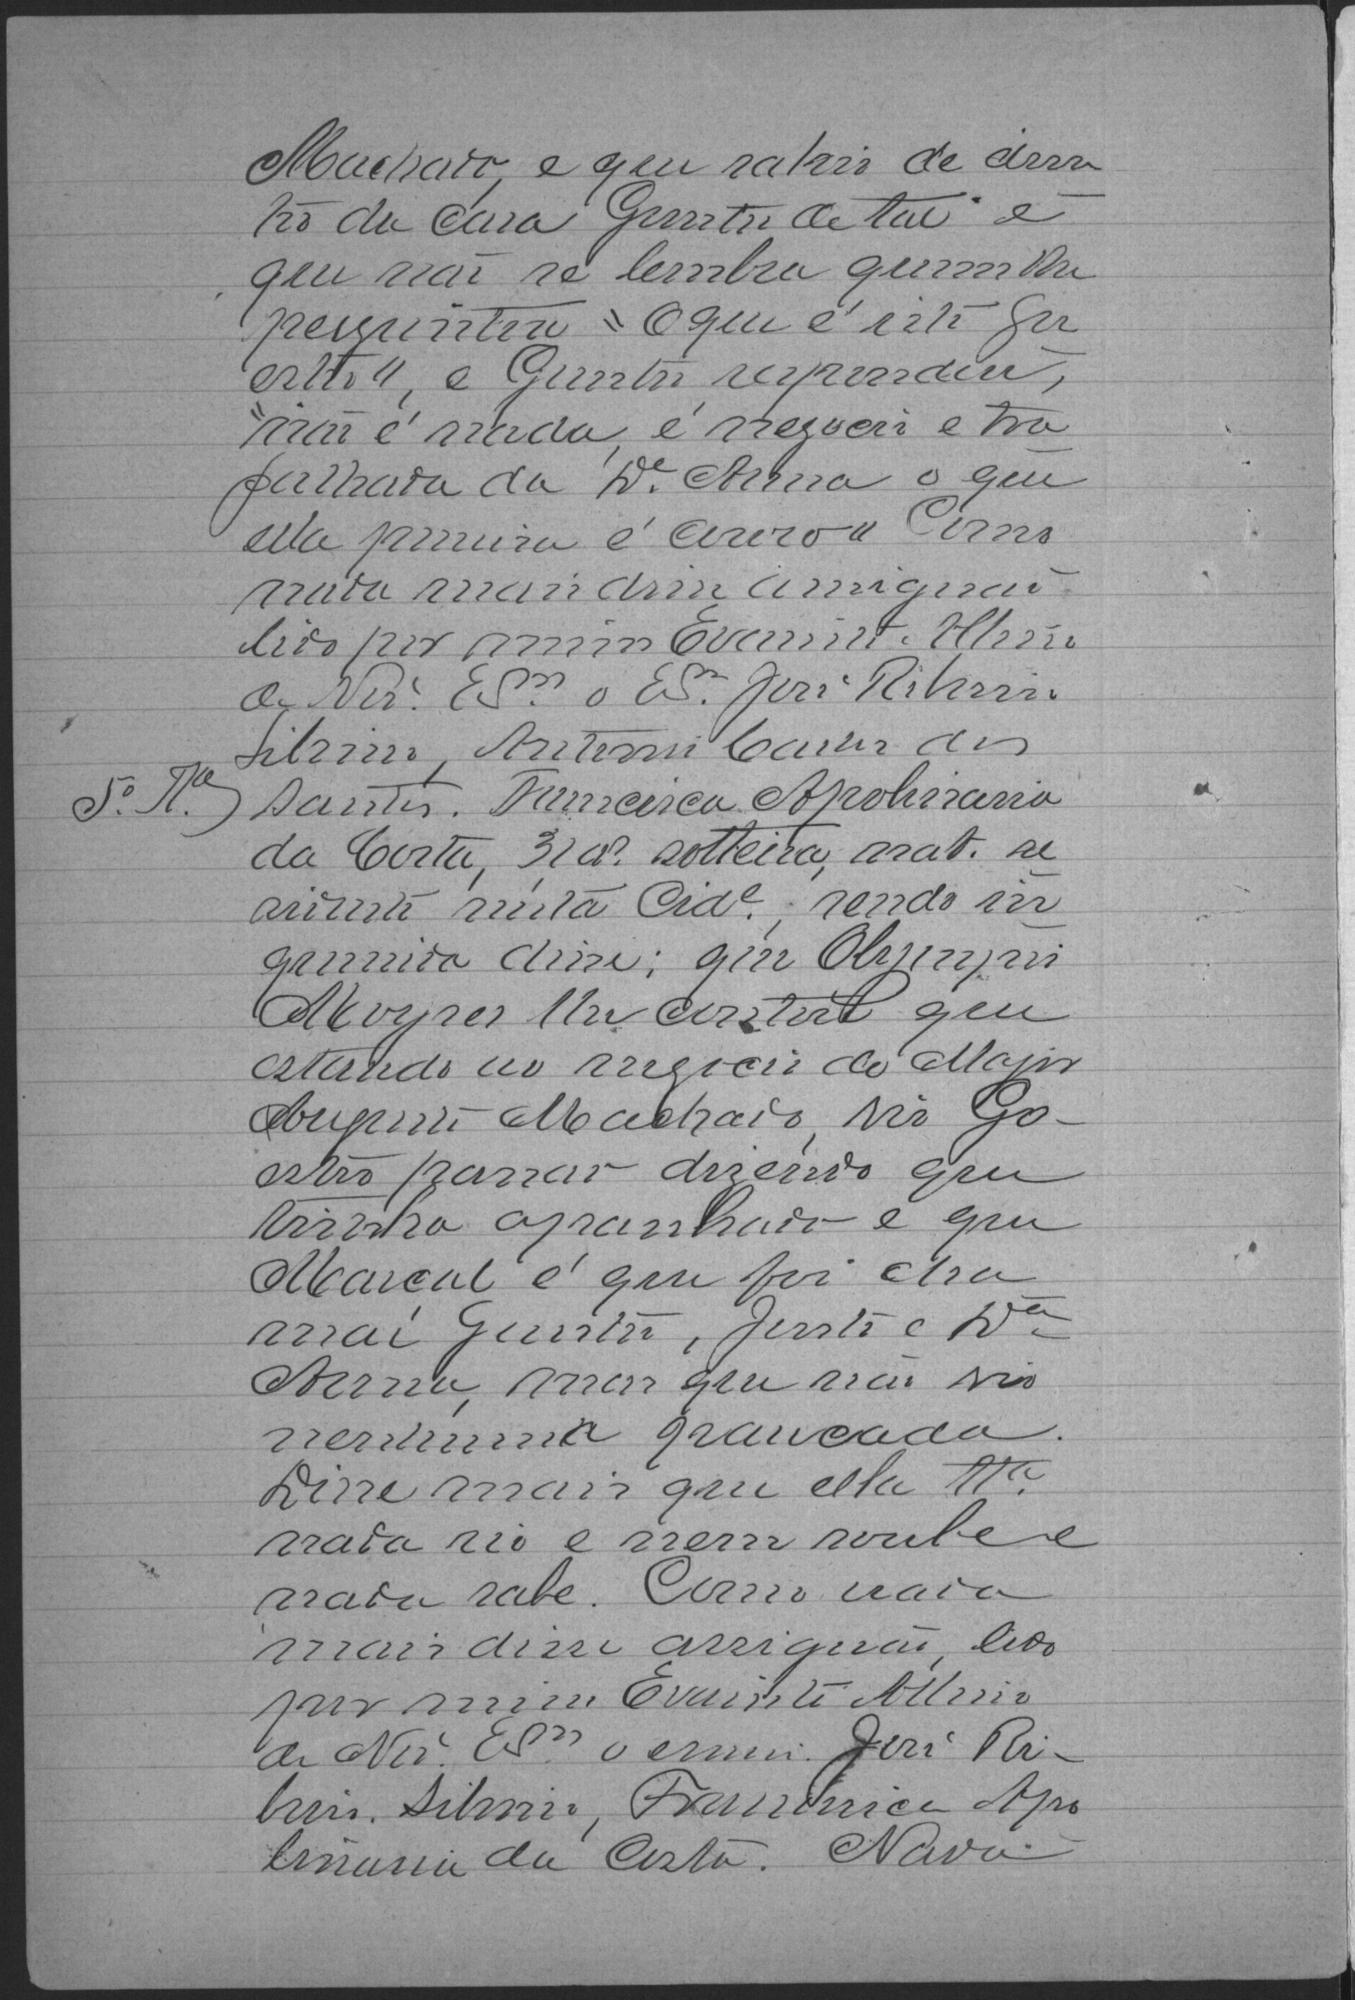 Machado, e que sahio de den
tro da casa Gunter de tal e
que não se lembra quem lhe
perguntou "O que é isto Gu
ester", e Gunter respondeu,
"não é nada, é negocio e tra
palhada da D.e Anna o que
ella precisa é couro" Como
nada mais disse assignão
lido por mim Evaristo Albino
de Ner.' Es.m o es. José Ribeiro
Silvino, Antonio Carlos dos
5.º T.a) Santos. Francisca Apolinaria
da Costa, 31 a.s solteira, nat. re
sidente nesta Cid.e, sendo in
querida disse; que Olympio
Moyses lhe contou que
estando no negocio do Major
Augusto Machado, vio Go-
estro passar dizendo que
tinha apanhado e que
Marcal é que foi cha
mar Gunter, Justo e D.a
Anna, mas que não vio
nenhuma pancada.
Disse mais que ella T.a
nada vio e nem soube e
nada sabe. Como nada
mais disse assignão, lido
por mim Evaristo Albino
de Ner.' Es.m o escrevi. José Ri-
beiro. Silvino, Francisca Apo
linaria da Costa. Nada